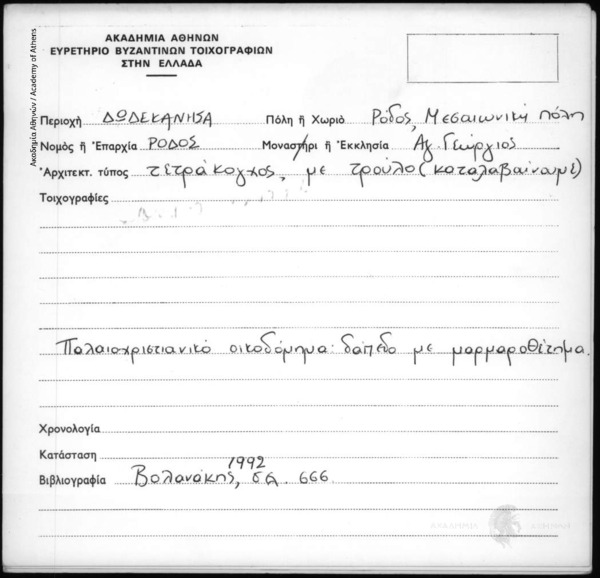 ΑΚΑΔΗΜΙΑ ΑΘΗΝΩΝ
ΕΥΡΕΤΗΡΙΟ ΒΥΖΑΝΤΙΝΩΝ ΤΟΙΧΟΓΡΑΦΙΩΝ
ΣΤΗΝ ΕΛΛΑΔΑ
Ακαδημία Αθηνών / Academy of Athens
Περιοχή ΔΩΔΕΚΑΝΗΣΑ Πόλη ἤ Χωριό Ρόδος, Μεσαιωνική πόλη
Νομός ἤ Ἐπαρχία ΡΟΔΟΣ Μοναστήρι ἤ Ἐκκλησία Αγ. Γεώργιος
Ἀρχιτεκτ. τύπος τετράκογχος, με τρούλο (καταλαβαίνωμε)
Τοιχογραφίες
Παλαιοχριστιανικό οικοδόμημα: δάπεδο με μαρμαροθέτημα.
Χρονολογία
Κατάσταση
Βιβλιογραφία Βολανάκης, 1992, σελ. 666.
ΑΚΑΔΗΜΙΑ ΑΘΗΝΩΝ